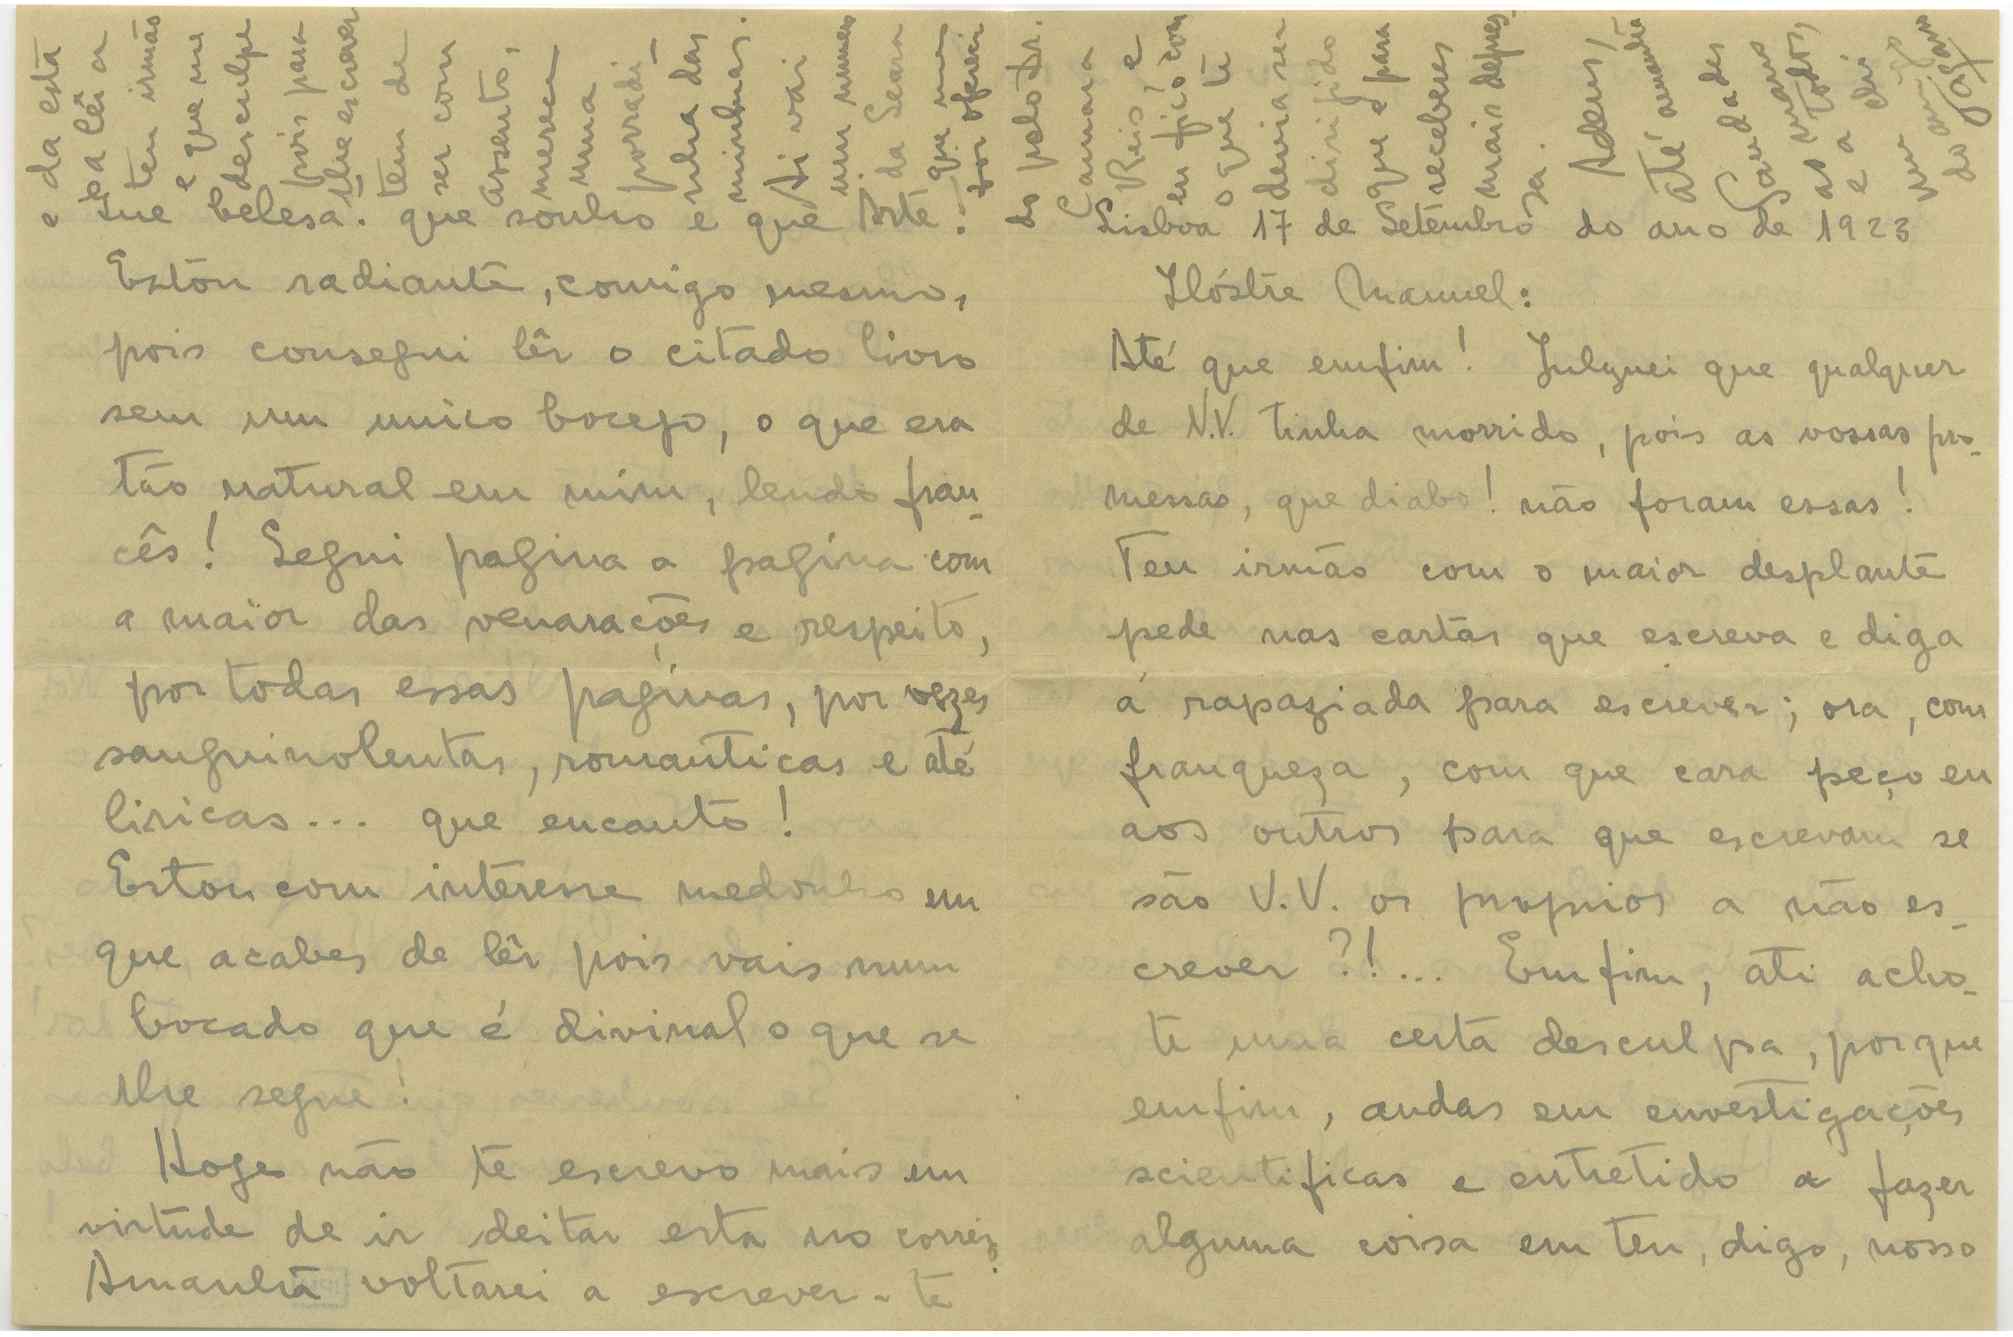 Lisboa 17 de Setembro do ano de 1923
Ilóstre Manuel:
Até que emfim! Julguei que qualquer
de V.V. tinha morrido, pois as vossas pro-
messas, que diabo! não foram essas!
Teu irmão com o maior desplante
pede nas cartas que escreva e diga
á rapaziada para escrever; ora, com
franqueza, com que cara peço eu
aos outros para que escrevam se
são V.V. os proprios a não es-
crever?!... Emfim, ati acho-
te uma certa desculpa, porque
emfim, andas em envestigações
scientificas e entretido a fazer
alguma coisa em teu, digo, nosso
que belesa! que sonho e que Arte!
Estou radiante, comigo mesmo,
pois consegui lêr o citado livro
sem um unico bocejo, o que era
tão natural em mim, lendo fran-
cês! Segui pagina a pagina com
a maior das venarações e respeito,
por todas essas paginas, por vezes
sanguinolentas, romanticas e até
liricas... que encanto!
Estou com interesse medonho em
que acabes de lêr pois vais num
bocado que é divinal o que se
lhe segue!
Hoje não te escrevo mais em
virtude de ir deitar esta no correio
Amanhã voltarei a escrever-te
e da está
pa lêr a
teu irmão
e que me
desculpe
pois para
lhe escrever
tem de
ser com
assento,
merece
uma
porradi-
nha das
minhas.
Ai vai
um numero
da Seara
que me
foi ofereci
do pelo Dr.
Camara
Reis, e
eu fico com
o que te
devia ser
dirijido
que é para
receberes
mais depres
sa.
Adeus,
até amanhã
Saudades
as manos
e a todos
do amigo